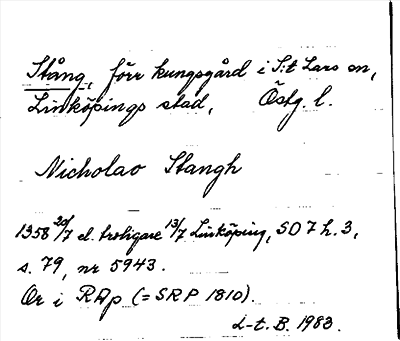 Stång, förr kungsgård i S:t Lars sn,
Linköpings stad, Östg. l.
Nicholao Stangh
1358 20/7 el. troligare 13/7 Linköping, SD 7 h. 3,
s. 79, nr 5943.
Or i RAp (= SRP 1810).
L-t. B. 1983.